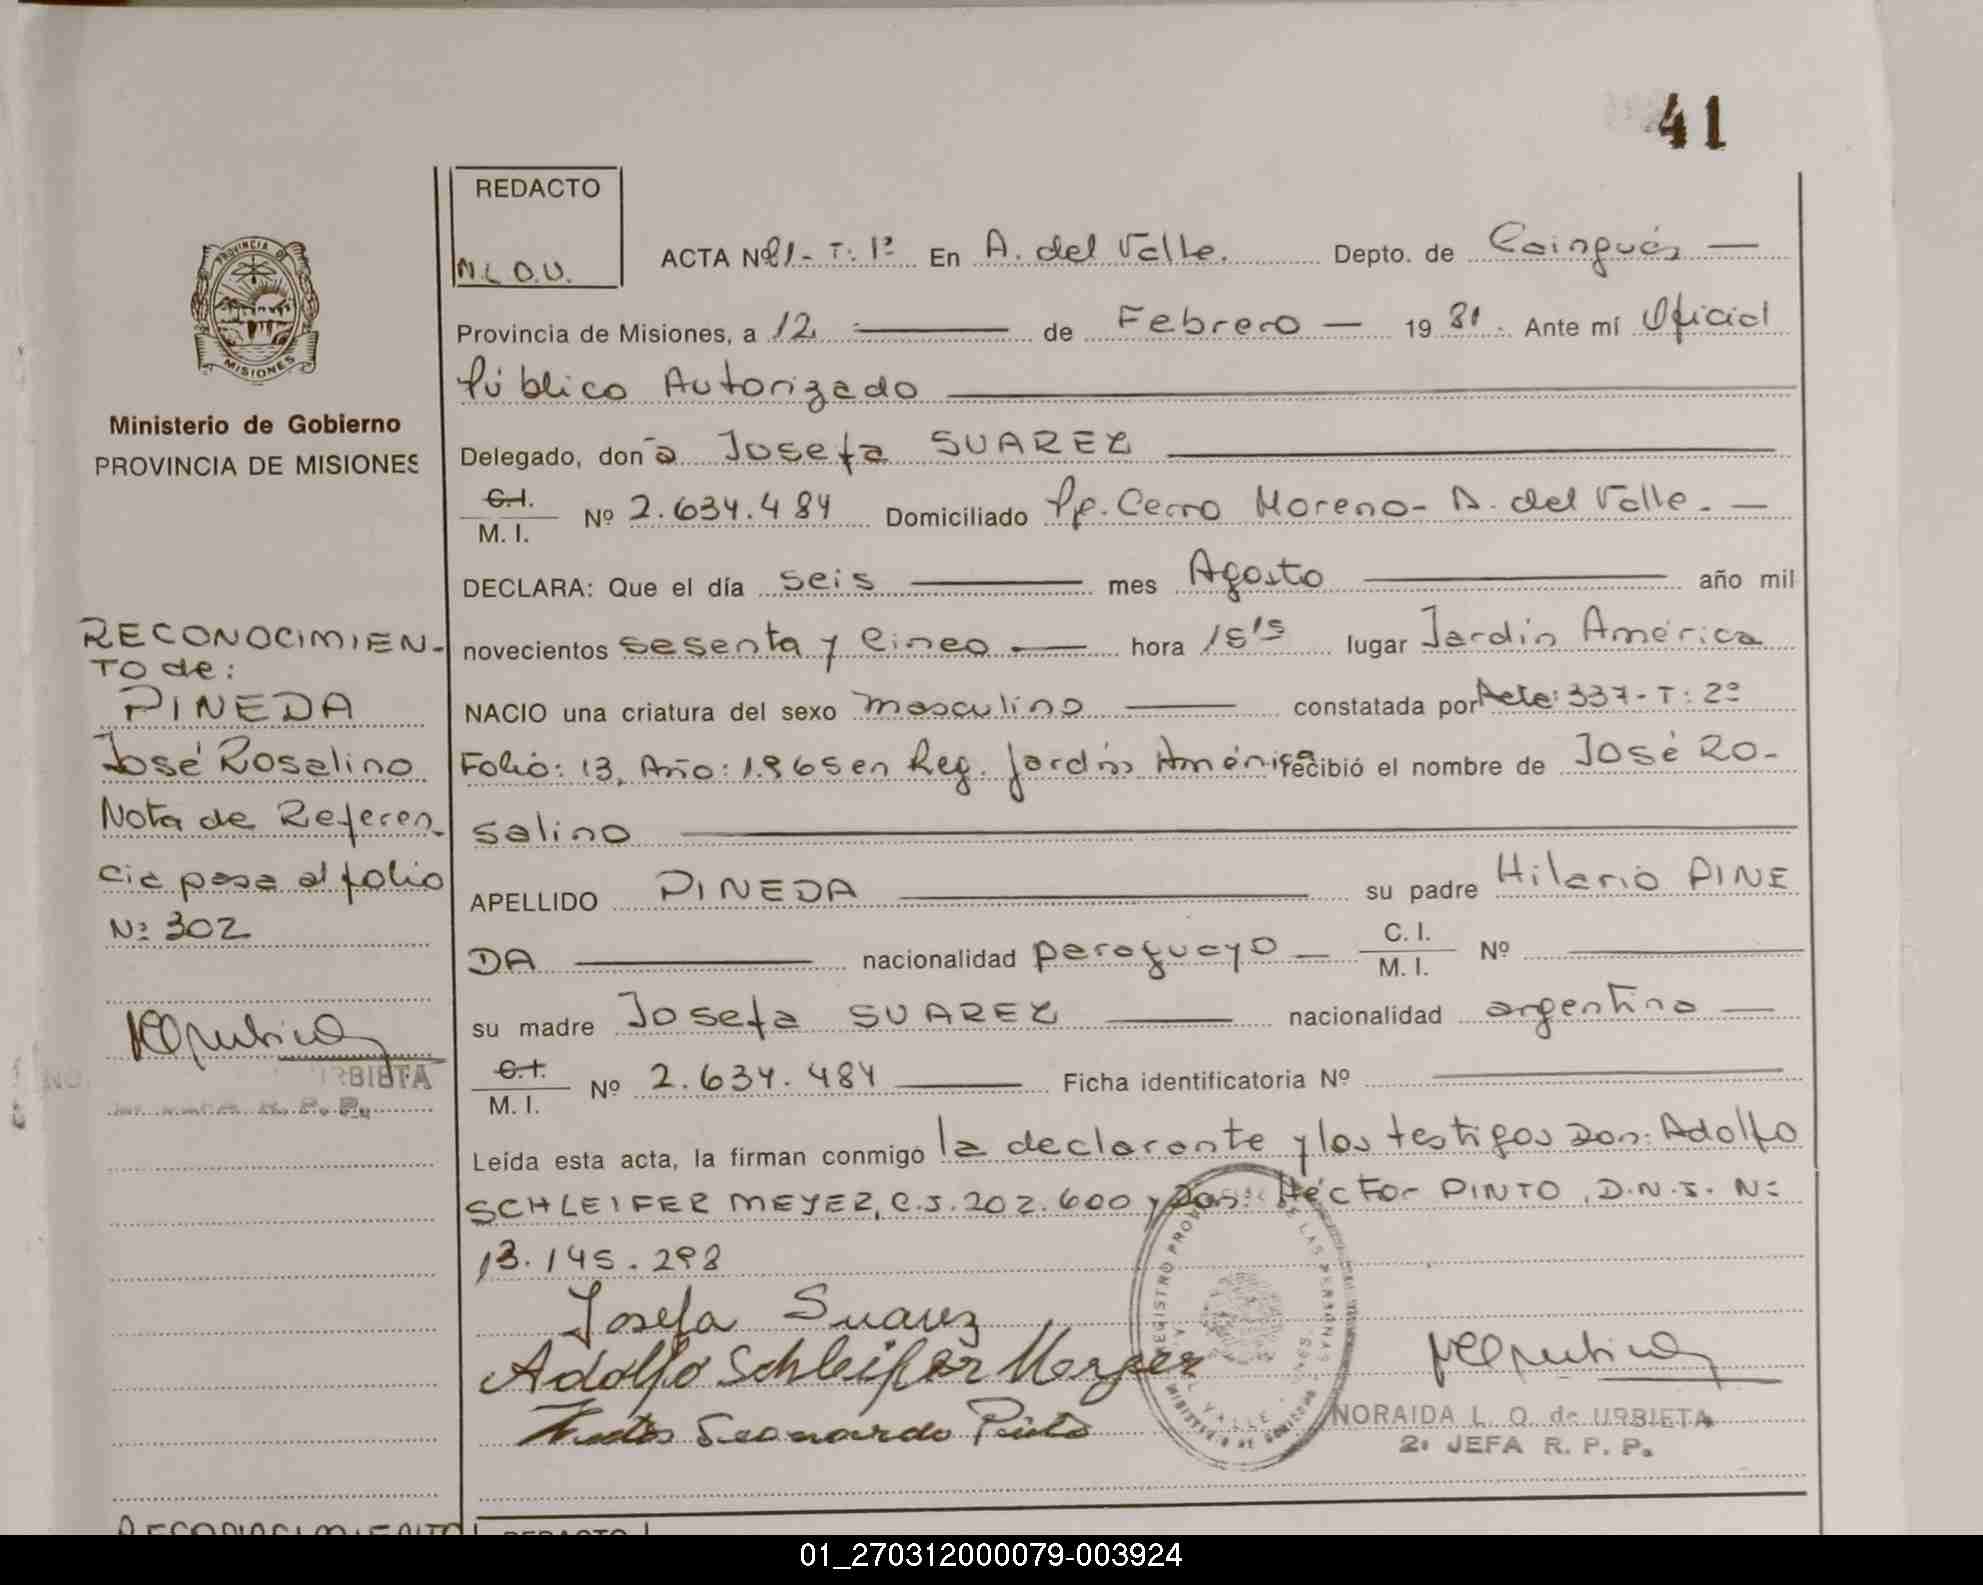 41
REDACTO
N.L.O.U.
ACTA Nº 81- T: 1º En A. del Valle. Depto. de Cainguás —
Provincia de Misiones, a 12 — de Febrero — 19 81. Ante mí Oficial
Público Autorizado
Delegado, doña Josefa SUAREZ
C.I.
M. I. Nº 2.634.484 Domiciliado Pje. Cerro Moreno- A. del Valle. —
DECLARA: Que el día seis — mes Agosto — año mil
novecientos sesenta y Cinco — hora 15'15 lugar Jardín América
NACIO una criatura del sexo masculino — constatada por Acta: 337- T: 2º
Folio: 13, Año: 1.965 en Reg. Jardín América recibió el nombre de José RO-
salino
APELLIDO PINEDA — su padre Hilario PINE
DA — nacionalidad paraguayo — C. I.
M. I. Nº —
su madre Josefa SUAREZ — nacionalidad argentina —
C.I.
M. I. Nº 2.634.484 — Ficha identificatoria Nº —
Leída esta acta, la firman conmigo la declarante y los testigos Don: Adolfo
SCHLEIFER MEYER, C.I. 202.600 y Don: Héctor PINTO, D.N.I. Nº
13.145.298
Josefa Suarez
Adolfo Schleifer Meyer
Leonardo Pinto
NORAIDA L. O. de URBIETA
2ª JEFA R. P. P.
PROVINCIA DE
MISIONES
Ministerio de Gobierno
PROVINCIA DE MISIONES
RECONOCIMIEN-
TO de:
PINEDA
José Rosalino
Nota de Referen-
cia pasa al folio
Nº 302
URBIETA
JEFA R. P. P.
REGISTRO PROV DE LAS PERSONAS
VALLE
MINISTERIO DE GOBIERNO
RECONOCIMIENTO
REDACTO
01_270312000079-003924